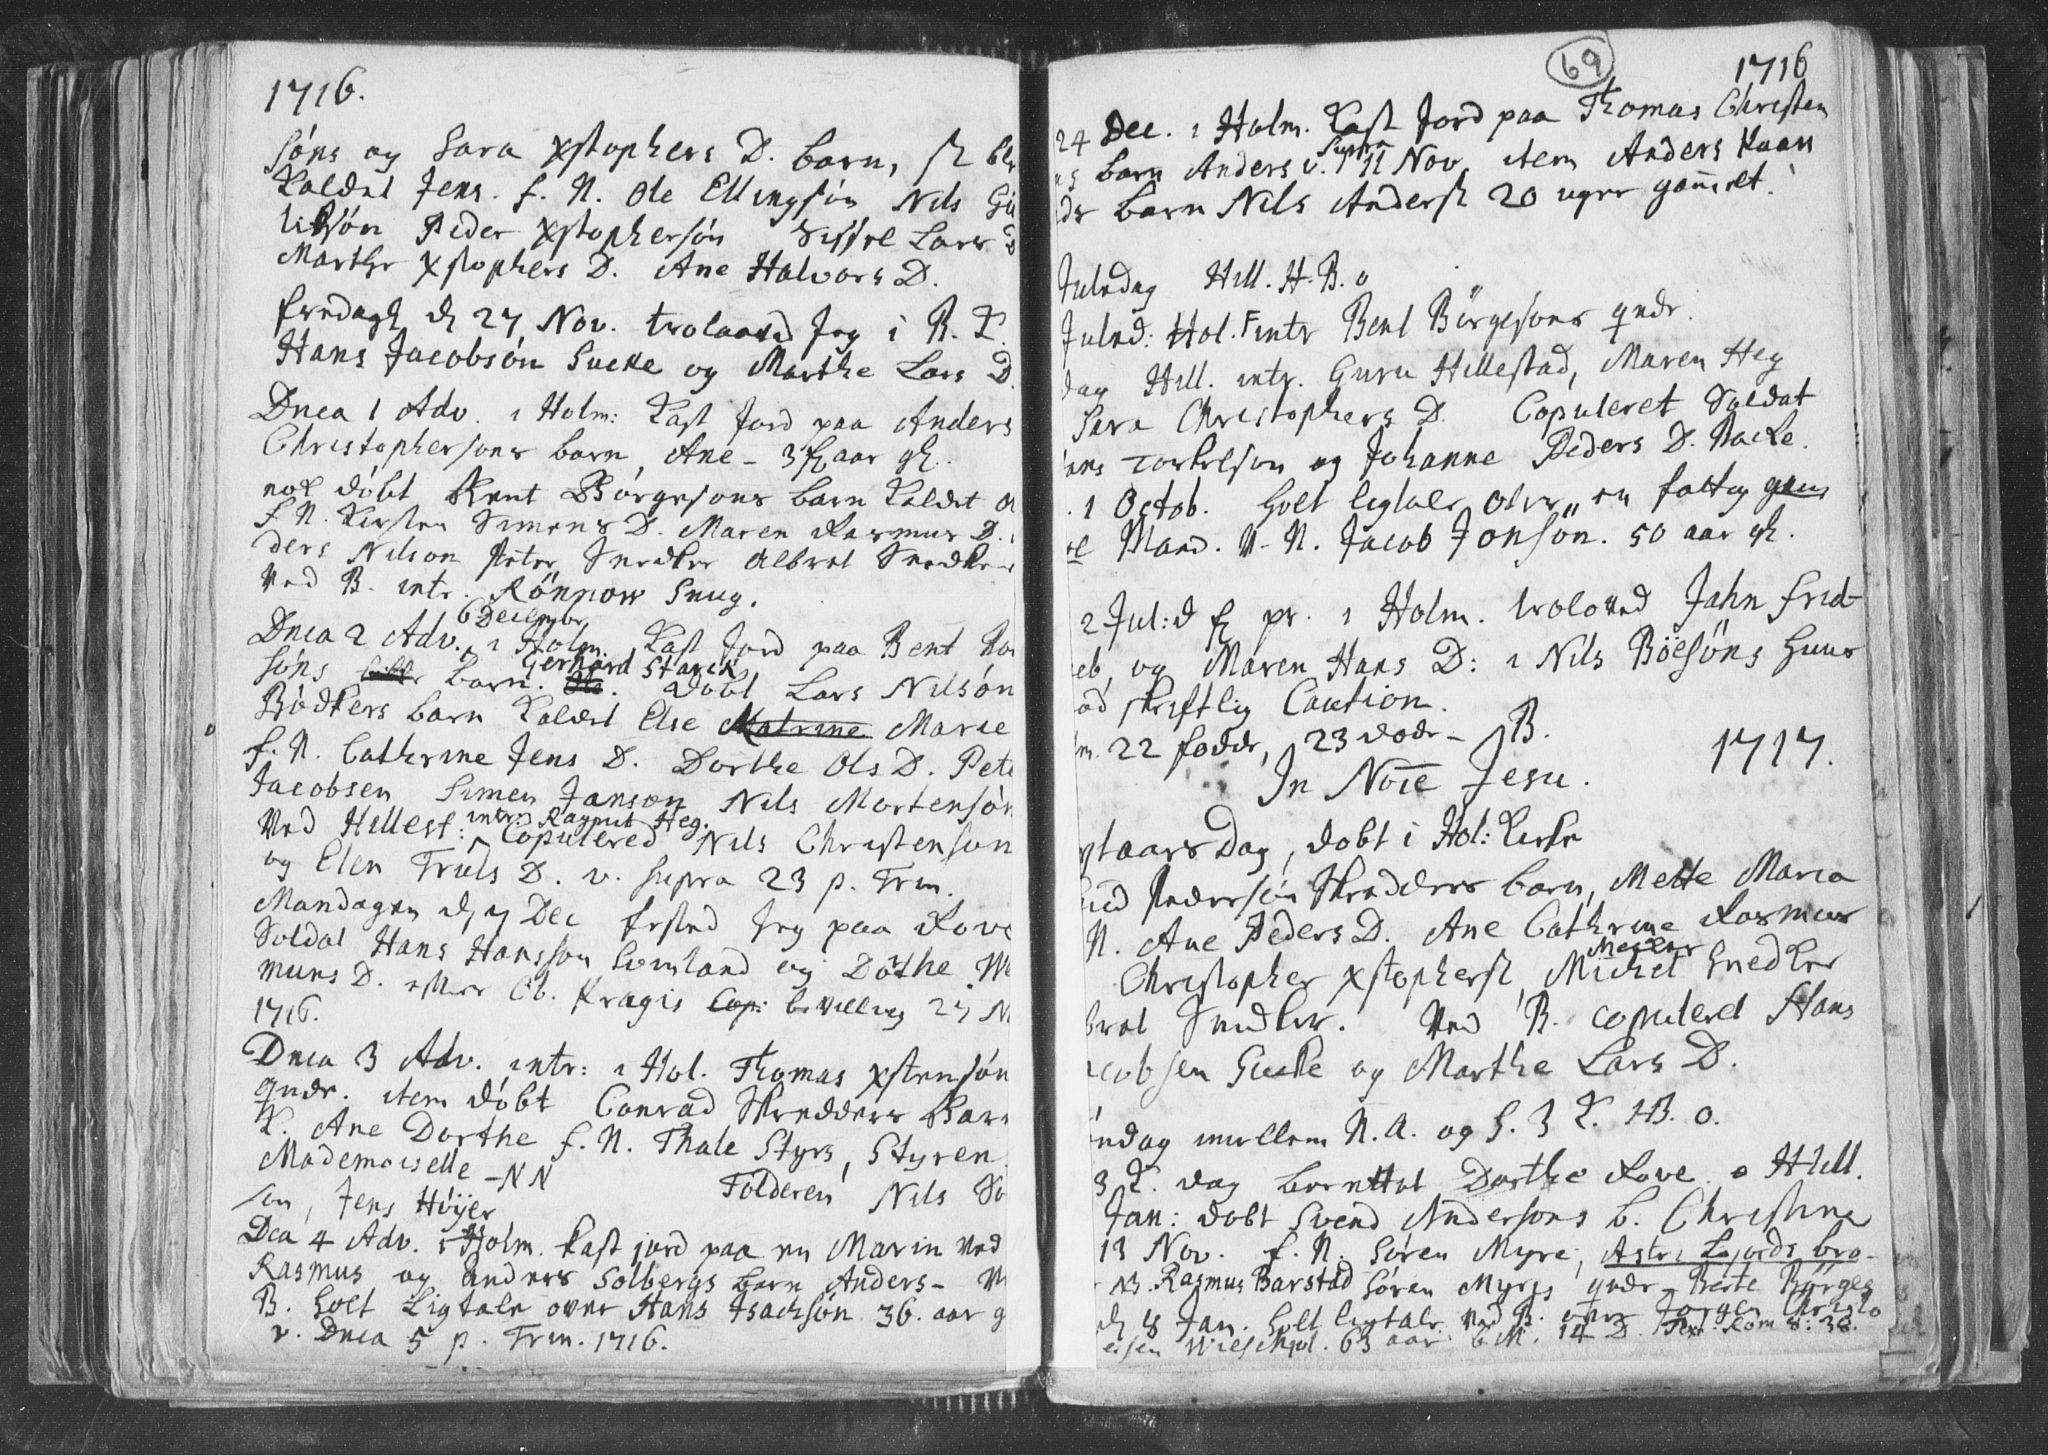 1716.
Søns og Sara xstophers D. barn, blef
Kaldet Jens. f. N. Ole Ellingsøn Nils
Peder xstophersøn Sissel Lars D
Marthe xstophers D. Ane Halvors D.
fredagen d 27 Nov. trolaaved Jeg i B. K.
Hans Jacobsøn Sucke og Marthe Lars D.
Dnca 1 Adv. i Holm: Kast Jord paa Anders
Christophersøns barn, Ane – 3 fj aar gl.
nok døbt Bent Børgesøns barn Kaldet
f. N. Kirsten Simens D. Maren Rasmus D.
ders Nilson Peter Snedker Albret Snedker
Ved B. intr. Rönnow Snug.
6 Decembr
Dnca 2 Adv. i Holm. Kast Jord paa Bent
Gerhard Starck
søns barn. døbt Lars Nilsøn
Bødkers barn Kaldet Else Matrine Marie
f. N. Cathrine Jens D. Dorthe Ols D. Pete
Jacobsen Simen Janson Nils Mortensøn
intr. Ragnil Heg.
Ved Hillest: Copulered Nils Christenson
og Elen Truls D. v. supra 23 p. Trin.
Mandagen d 7 Dec fested Jeg paa Rove
Soldat Hans Hansson Somland og Dōthe
muns D. efter Ob. Kragis Cop: bevilling 27 N
1716.
Dnca 3 Adv. intr: i Hol. Thomas xstensøn
qvde. item døbt Conrad Skredders Bar
K. Ane Dorthe f. N. Thale Styrs, Styren
Mademoiselle – NN Tolderen Nils So
sen, Jens Høyer
Dca 4 Adv. i Holm. Kast jord paa en Marin ved
Rasmus og Anders Solbergs barn Anders –
B. holt Ligtale over Hans Isachsøn 36. aar g
v. Dnca 5 p. Trin. 1716.
69
1716
24 Dec. i Holm. Kast Jord paa Thomas Christen
supra
ns barn Anders v. 11 Nov. item Anders Kaas
barn Nils Andersøn 20 uger gammelt.
Juledag Hill. H. B. o
Juled: Hol. intr Bent Börgesons qvde.
dag Hill. intr. Guru Hillestad, Maren Heg
Sara Christophers D. Copuleret Soldat
Torkelson og Johanne Peders D. Backe.
1 Octob. holt ligtale over en fattig
Mand. N. N. Jacob Jonsøn. 50 aar gl.
2 Jul: d pr. i Holm. troloved Jahn Frid-
eb, og Maren Hans D: i Nils Böesøns huus
skriftlig Caution.
22 fødde, 23 døde – B.
1717.
In Noīe Jesu.
ytaars Dag, døbt i Hol: Kirke
Pedersøn Skredders barn, Mette Maria
N. Ane Peders D. Ane Cathrine Rasmus
Christopher xstophersøn, Michel Snedker
bret Snedker. Ved B. copulered Hans
acobsen Sucke og Marthe Lars D.
øndag mellem N. A. og H. 3 K. H B. o.
3 K. dag berettet Dorthe Rove. o Hill.
Jan: døbt Svend Andersons b. Christine
13 Nov. f. N. Søren Myre, Astri Lejords bro-
Rasmus Barstad Søren Myrs qvde Berte Børges
d 8 Jan. holt ligtale ved B. over Jørgen Christo
63 aar 6 M. 14 D. Text. Rom 8: 38.